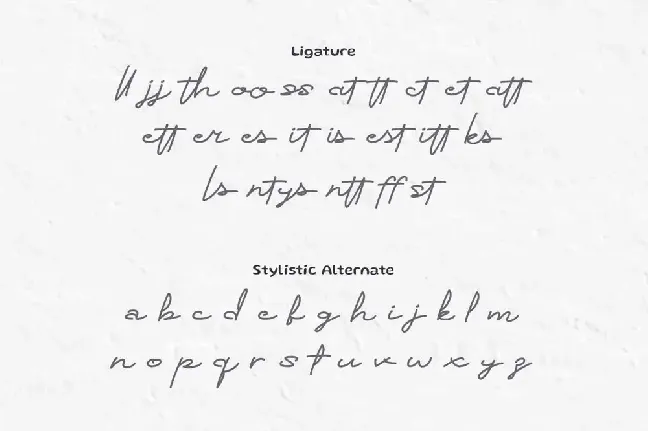 Ligature
ll jj th oo ss at tt ct et att
ett er es it is est itt ks
ls nt ys ntt ff st
Stylistic Alternate
a b c d e f g h i j k l m
n o p q r s t u v w x y z